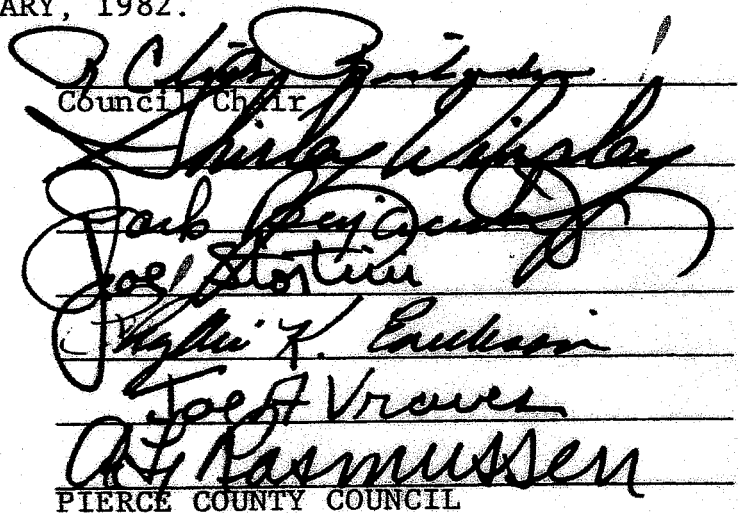 ARY, 1982.
Council Chair
Shirley Winsley
Jack
Joe Stortini
Phyllis K. Erickson
Joe A Vraves
Rasmussen
PIERCE COUNTY COUNCIL